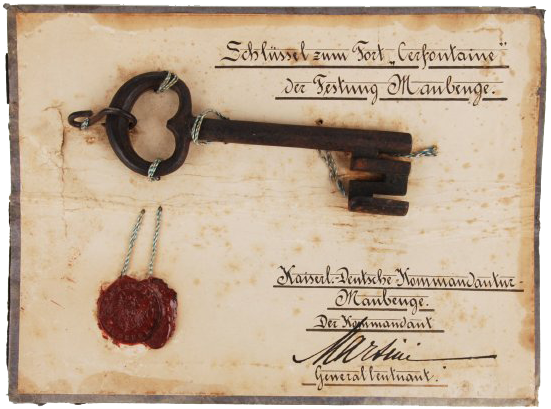 Schlüssel zum Fort „Cerfontaine"
der Festung Maubeuge.
Kaiserl.-Deutsche Kommandantur-
Maubeuge.
Der Kommandant
Martini
Generalleutnant.